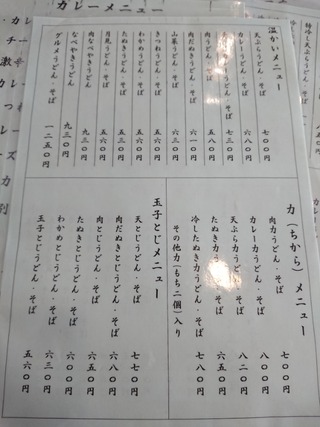 カレーメニュー
温かいメニュー
天ぷらうどん・そば 七〇〇円
カレーうどん・そば 六八〇円
うどん・そば 七三〇円
肉うどん・そば 五八〇円
肉だぬきうどん・そば 六一〇円
山菜うどん・そば 六三〇円
きつねうどん・そば 五六〇円
わかめうどん・そば 五六〇円
たぬきうどん・そば 五六〇円
月見うどん・そば 五六〇円
肉なべやきうどん 九三〇円
なべやきうどん 九三〇円
グルメうどん・そば 一二五〇円
力(ちから)メニュー
肉力うどん・そば 七〇〇円
カレー力うどん・そば 八〇〇円
天ぷら力うどん・そば 八二〇円
たぬき力うどん・そば 六五〇円
冷したぬき力うどん・そば 七八〇円
その他力(もち二個)入り
玉子とじメニュー
天とじうどん・そば 七七〇円
肉だぬきとじうどん・そば 六八〇円
肉とじうどん・そば 六五〇円
たぬきとじうどん・そば 六〇〇円
わかめとじうどん・そば 六三〇円
玉子とじうどん・そば 五六〇円